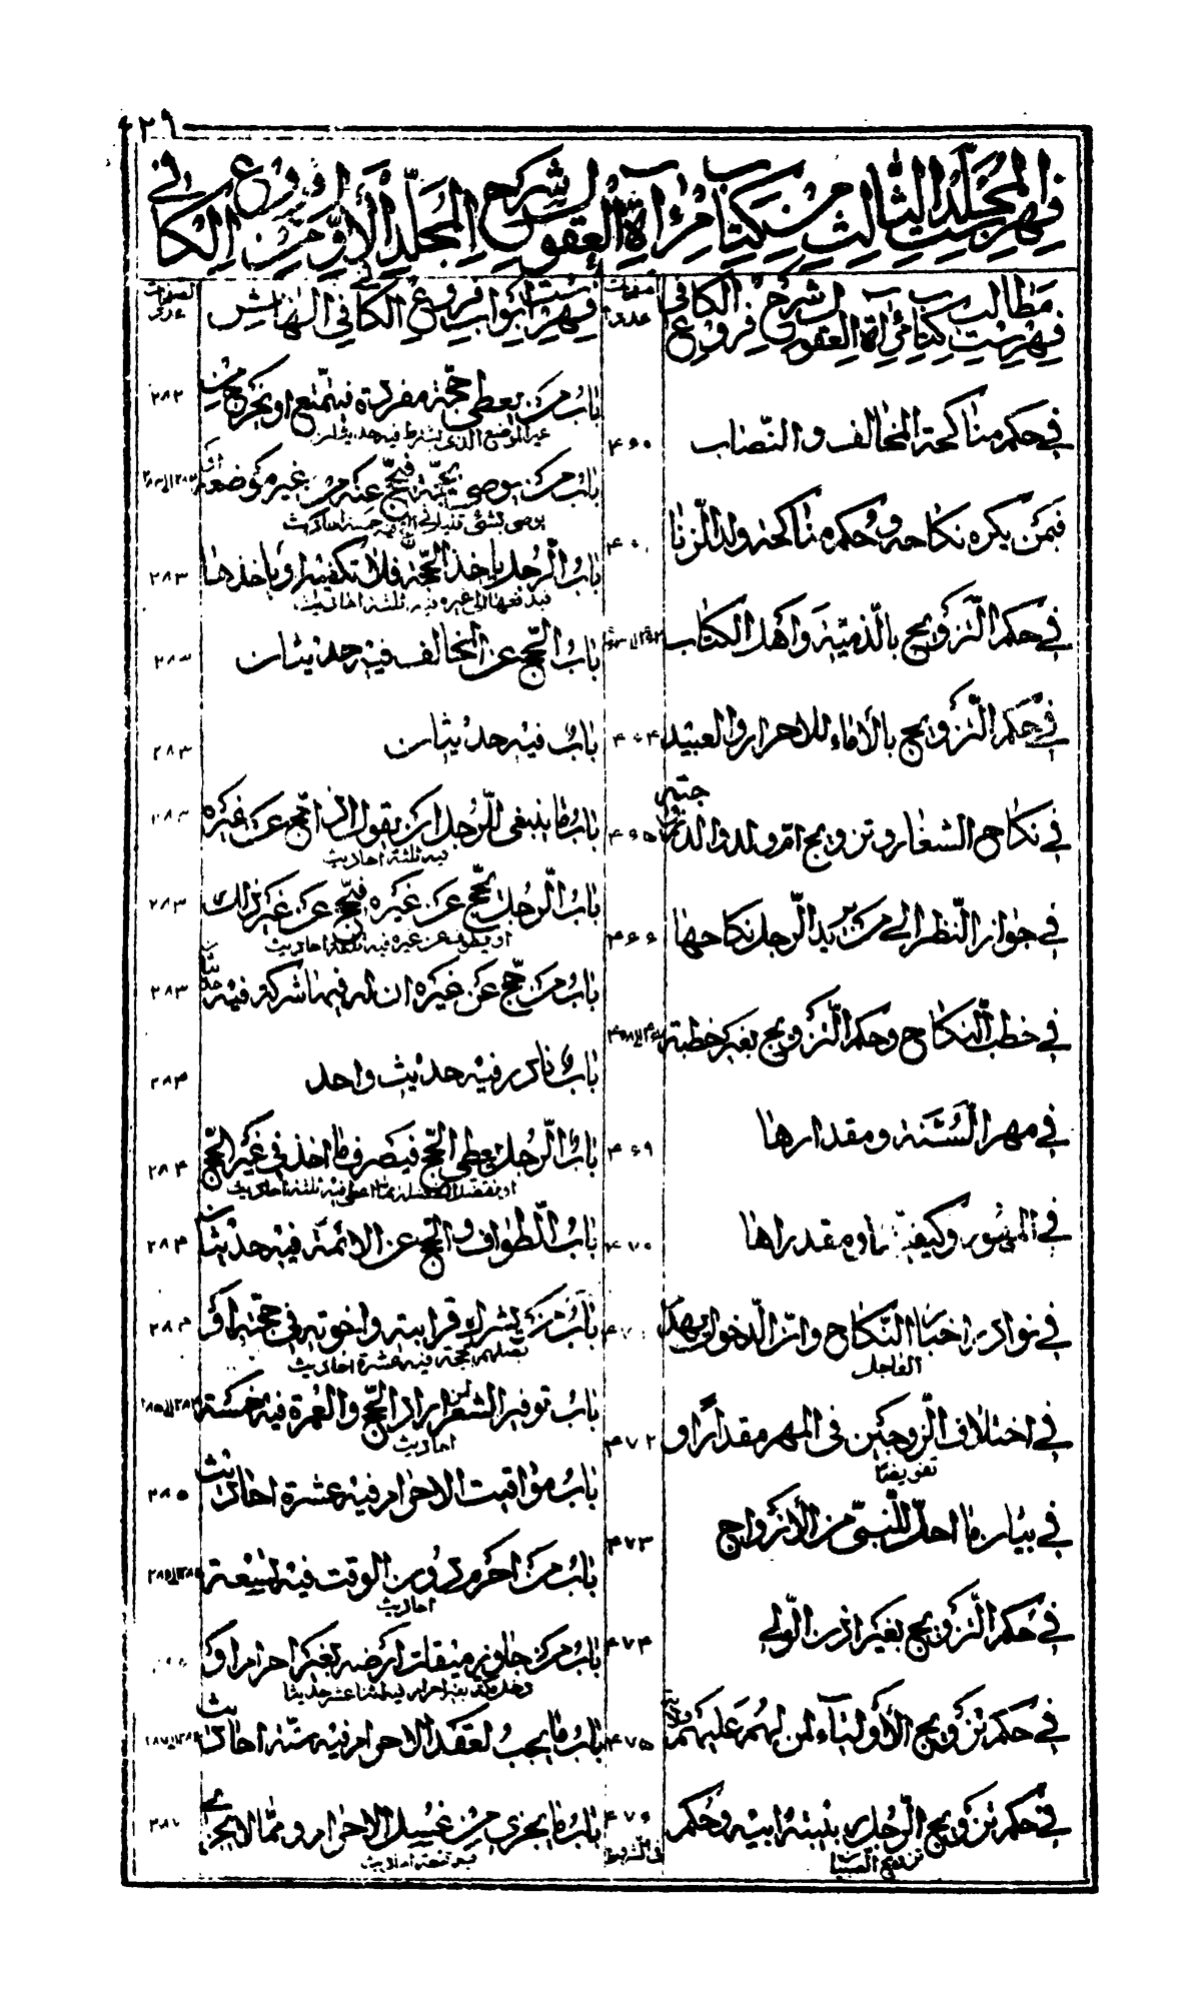 ٢٩
فهرست المجلد الثالث من كتاب مرآة العقول شرح المجلد الأول من فروع الكافي
فهرست مطالب كتاب مرآة العقول شرح فروع الكافي
في حكم مناكحة المخالف والنصاب
فيمن يكره نكاحه وحكم مناكحة ولد الزنا
في حكم التزويج بالذمية وأهل الكتاب
في حكم التزويج بالأماء للاحرار والعبيد
٤٠٤
في نكاح الشغار وتزويج ام ولد والد زوجته
٤٦٥
في جواز النظر الى من يريد الرجل نكاحها
٤٦٦
في خطب النكاح وحكم التزويج بغير خطبة
في مهر السنة ومقدارها
٤٦٩
في المهور وكيفية ومقدراها
٤٧٠
في نوادر اخبار النكاح وان الدخول يهدم
العاجل
في اختلاف الزوجين في المهر مقدارا و
تفويضا
٤٧٢
في بيان ما احل للنبي من الأزواج
٤٧٣
في حكم التزويج بغير اذن الولي
٤٧٤
في حكم تزويج الأولياء لمن لهم عليهم ولاية
٤٧٥
في حكم تزويج الرجل بنية ابيه وحكم
تزويج الصبيان
فهرست أبواب فروع الكافي في الهامش
باب من يعطى حجة مفردة فيتمتع او يخرج من
غير الموضع الذى يشترط فيه حديثان
٢٨٢
باب من يوصي بحجة فيحج عنه من غير موضعه او
يوصى بشئ قليل في الحج فيه خمسة احاديث
باب الرجل يأخذ الحجة فلا تكفيه او يأخذها
فيدفعها الى غيره فيه ثلثة احاديث
٢٨٣
باب الحج عن المخالف فيه حديثان
٢٨٣
باب فيه حديثان
٢٨٣
باب ما ينبغى للرجل ان يقول اذا حج عن غيره
فيه ثلثة احاديث
٢٨٣
باب الرجل يحج عن غيره فيحج عن غير ذلك
او يطوف عن غيره فيه ثلثة احاديث
٢٨٣
باب من حج عن غيره ان له فيها شركة فيه حديثان
٢٨٣
باب نادر فيه حديث واحد
٢٨٤
باب الرجل يعطى الحج فيصرف ما اخذ في غير الحج
او يفضل الفضلة مما اعطى فيه ثلثة احاديث
٢٨٤
باب الطواف والحج عن الائمة فيه حديثان
٢٨٤
باب من يشرك قرابته واخوته في حجته او
يصلهم بحجة فيه عشرة احاديث
٢٨٤
باب توفير الشعر لمن اراد الحج والعمرة فيه خمسة
احاديث
باب مواقيت الاحرام فيه عشرة احاديث
٢٨٥
باب من احرم دون الوقت فيه تسعة
احاديث
باب من جاوز ميقات ارضه بغير احرام او
دخل مكة بغير احرام فيه اثنا عشر حديثا
باب ما يجب لعقد الاحرام فيه ستة احاديث
باب ما يجزي من غسل الاحرام ومما لا يجزي
فيه تسعة احاديث